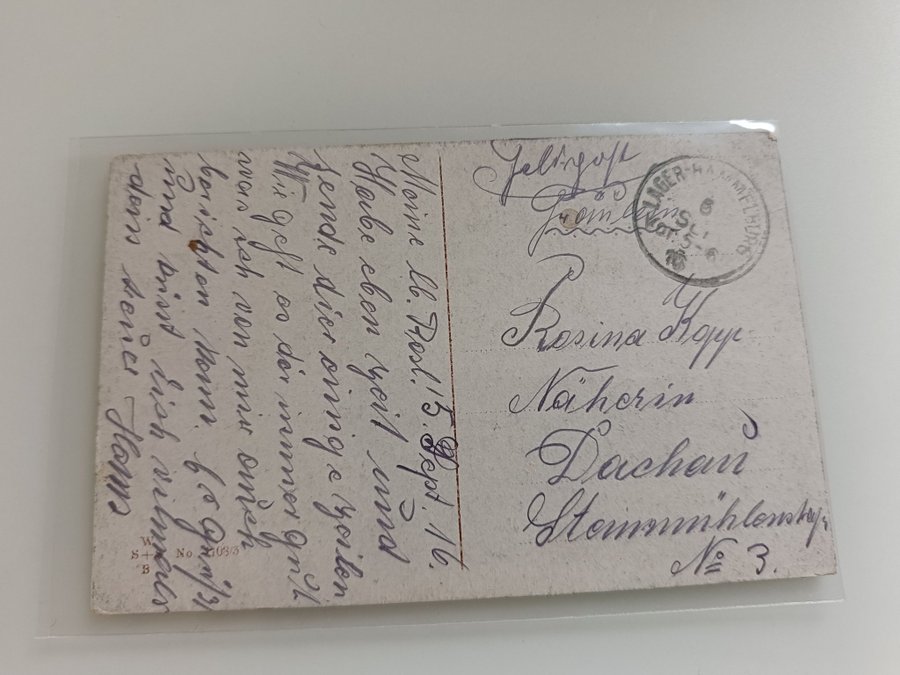 Meine lb. Rosl. 15. Sept. 16.
Habe eben Zeit und
sende dir einige Zeilen
Wie geht es dir immer gut
was ich von mir auch
berichten kann. Es grüßt
und küsst dich vilmals
dein treuer Hans
Feldpost
Fräulein
Rosina Kopp
Näherin
Dachau
Steinmühlenstr.
No 3.
LAGER-HAMMELBURG
W
S+ No
B